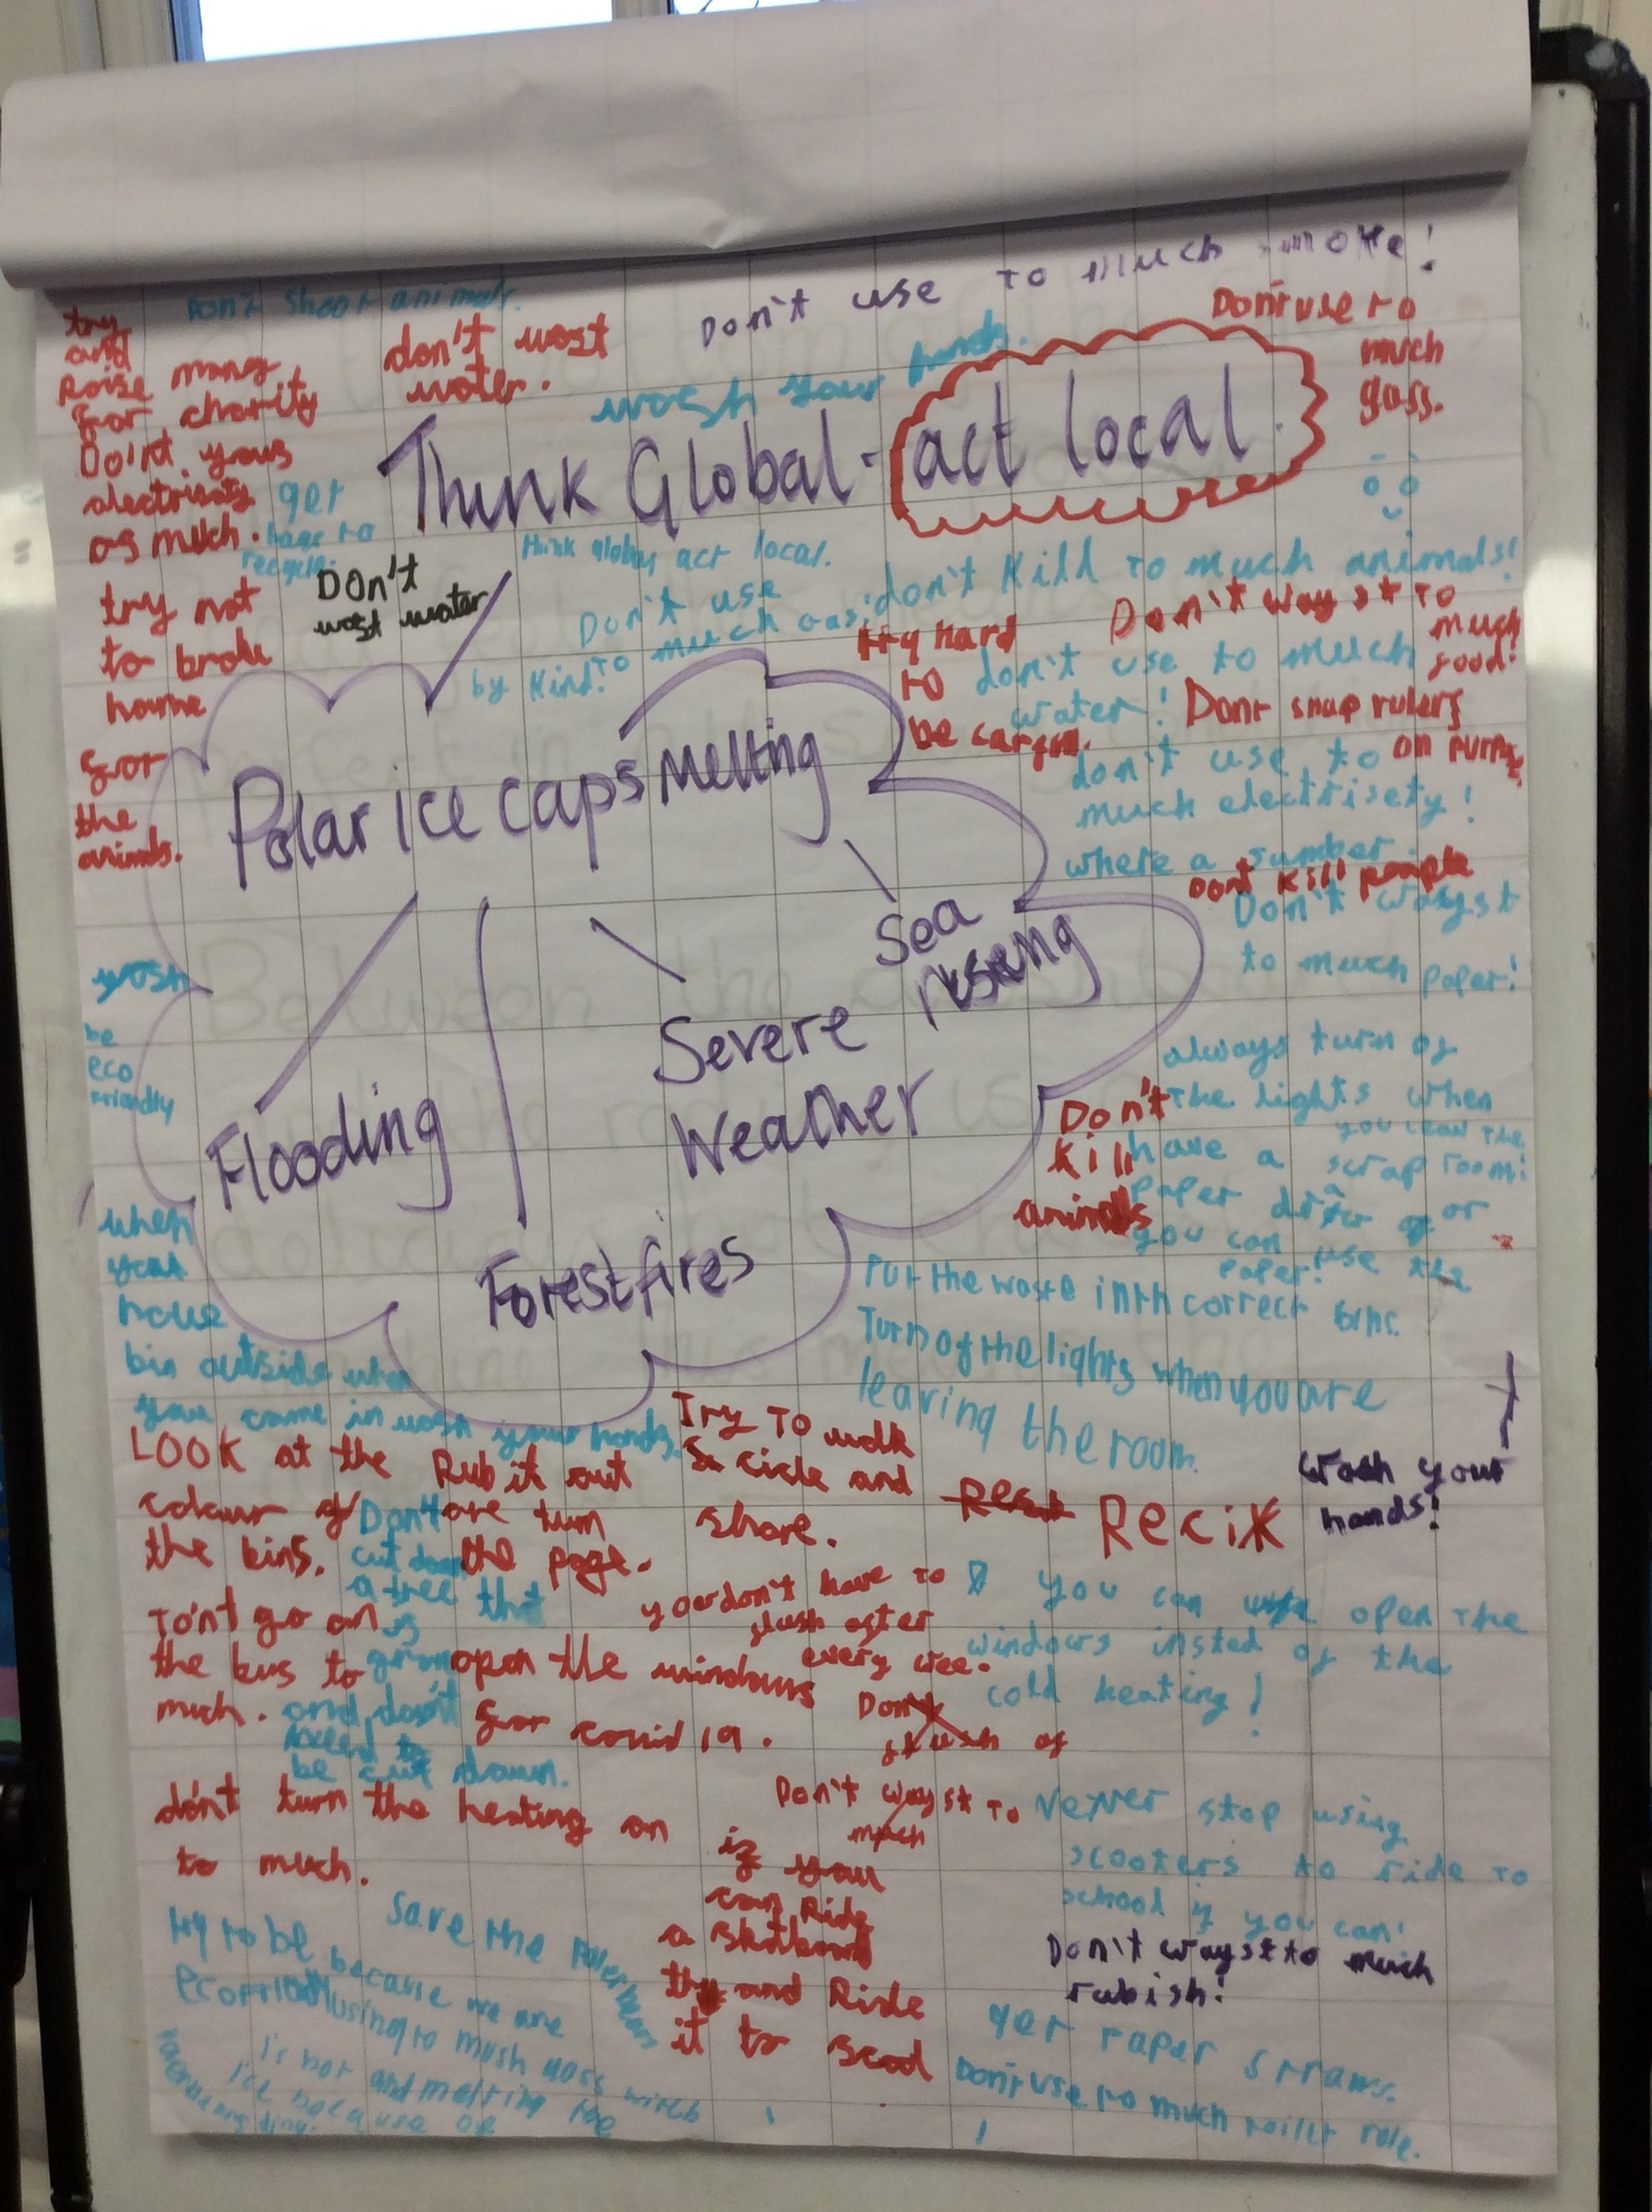 Don't use to much smoke!
Don't shoot animals.
try
and
Raise many
for charity
Do'nt yous
electrisaty
as much.
don't wost
water.
wosh your hands.
Don't use to
much
gass.
Think Global - act local.
get
bags to
recycle.
Don't
wost water
think global act local.
Don't use
to much gas!
by Kind!
don't Kill to much animals!
try hard
to
be carefull.
Don't wayst to
much
food!
don't use to much
water!
Dont snap rulers
on purpose.
don't use to
much electrisety!
where a jumber.
Dont Kill people
Don't wayst
to much paper!
try not
to brake
home
for
the
animals.
Polar ice caps melting
Sea
rising
Severe
Weather
Flooding
Forest fires
wosh
be
eco
friendly
always turn of
the lights when
you leav the
room!
have a scrap
paper draw or
you can use the
paper!
Don't
Kill
animals
Put the waste in th correct bins.
Turn of the lights when you are
leaving the room.
when
you
bin outside when
you came in wosh your hands.
LOOK at the
colour of
the bins.
Rub it out
are turn
the page.
Don't
cut down
a tree that
is
and don't
need to
be cut down.
Try to walk
cicle and
share.
Recik
wash your
hands!
To'nt go on
the bus to
much.
open the windows
for covid 19.
you don't have to
flush after
every wee.
you can open the
windows insted of the
cold heating!
Don't
flush of
don't turn the heating on
to much.
Don't wayst to
much
if you
can Ride
a skatboard
and Ride
it to scool
Never stop using
scooters to ride to
school if you can!
Don't wayst to much
rubish!
Save the Polerbears
try to be
Ecofriendly
because we are
using to much gass witch
is hot and melting the
ice because of
get paper straws.
Don't use to much toillet role.